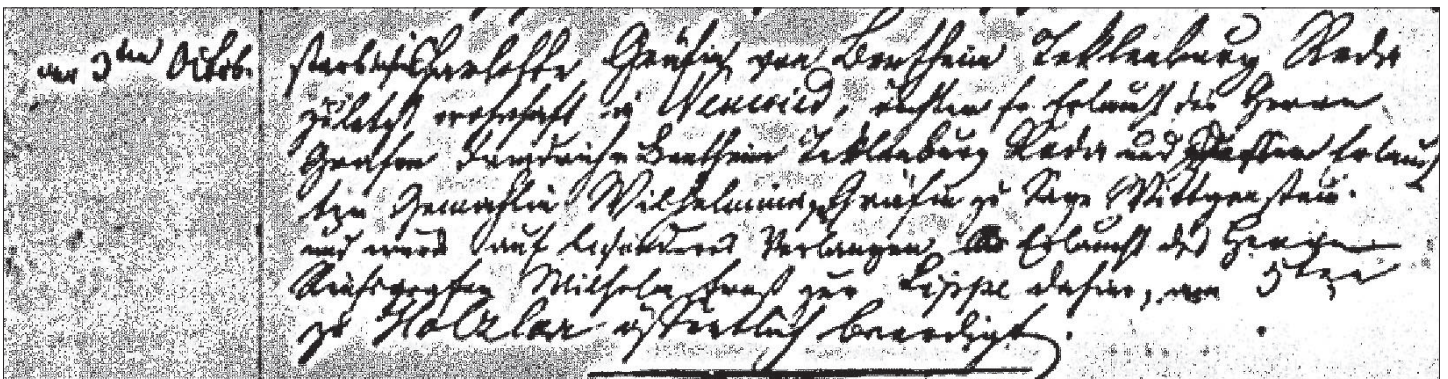 den 3ten Octob. starb Charlotte Gräfin von Bentheim Teklenburg Reda
zuletzt wohnhaft in Neuwied, Tochter Sr Erlaucht des Herrn
Grafen Bentheim Teklenburg Reda und Erlauch
ten Gemahlin Wilhelmina, Gräfin zu Sayn Wittgenstein.
und wurd auf besonderes Verlangen Sr Erlaucht des Herrn
Reichsgrafen Wilhelm Ernst zur Lippe dahier, am 5ten
zu Holzlar öffentlich beerdigt.